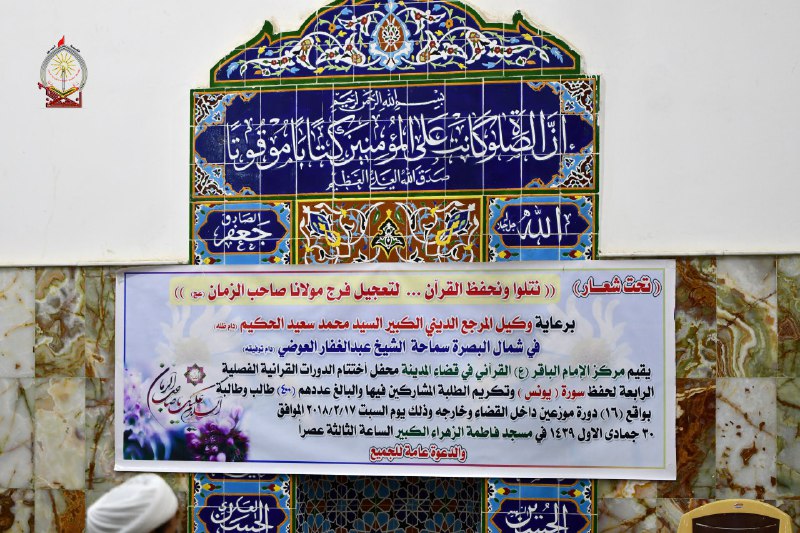 بسم الله الرحمن الرحيم
إن الصلوة كانت على المؤمنين كتابا موقوتا
صدق الله العلي العظيم
الصادق
جعفر
الله
جل جلاله
(تحت شعار) (( نتلوا ونحفظ القرآن ... لتعجيل فرج مولانا صاحب الزمان (عج) ))
برعاية وكيل المرجع الديني الكبير السيد محمد سعيد الحكيم (دام ظله)
في شمال البصرة سماحة الشيخ عبدالغفار العوضي (دام توفيقه)
يقيم مركز الإمام الباقر (ع) القرآني في قضاء المدينة محفل أختتام الدورات القرانية الفصلية
الرابعة لحفظ سورة ( يونس ) وتكريم الطلبة المشاركين فيها والبالغ عددهم (٤٠٠) طالب وطالبة
بواقع (١٦) دورة موزعين داخل القضاء وخارجه وذلك يوم السبت ٢٠١٨/٢/١٧ الموافق
٣٠ جمادى الاول ١٤٣٩ في مسجد فاطمة الزهراء الكبير الساعة الثالثة عصراً
والدعوة عامة للجميع
السلام عليك يا صاحب الزمان
العسكري
الحسن
الحسين